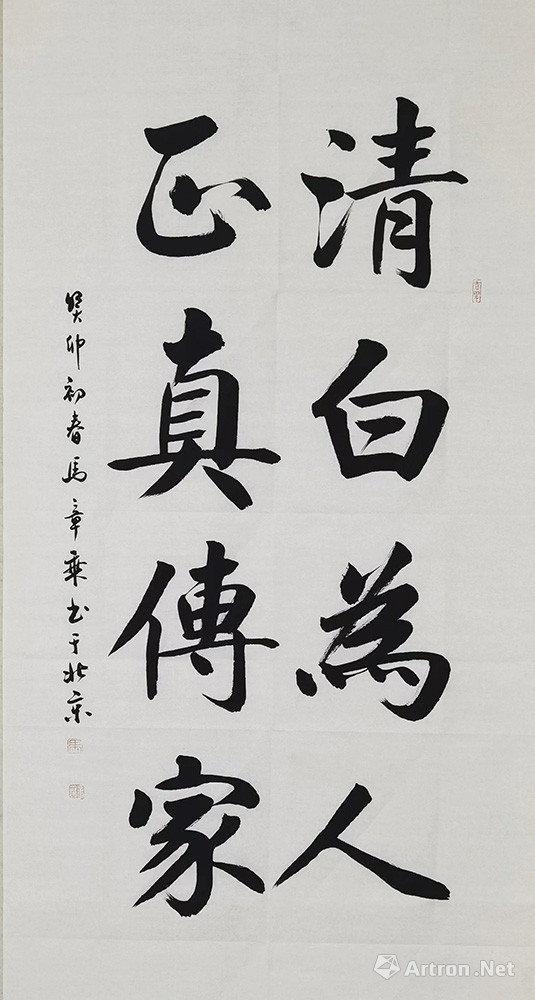 清白為人
正真傳家
癸卯初春馬章乘书于北京
Artron.Net